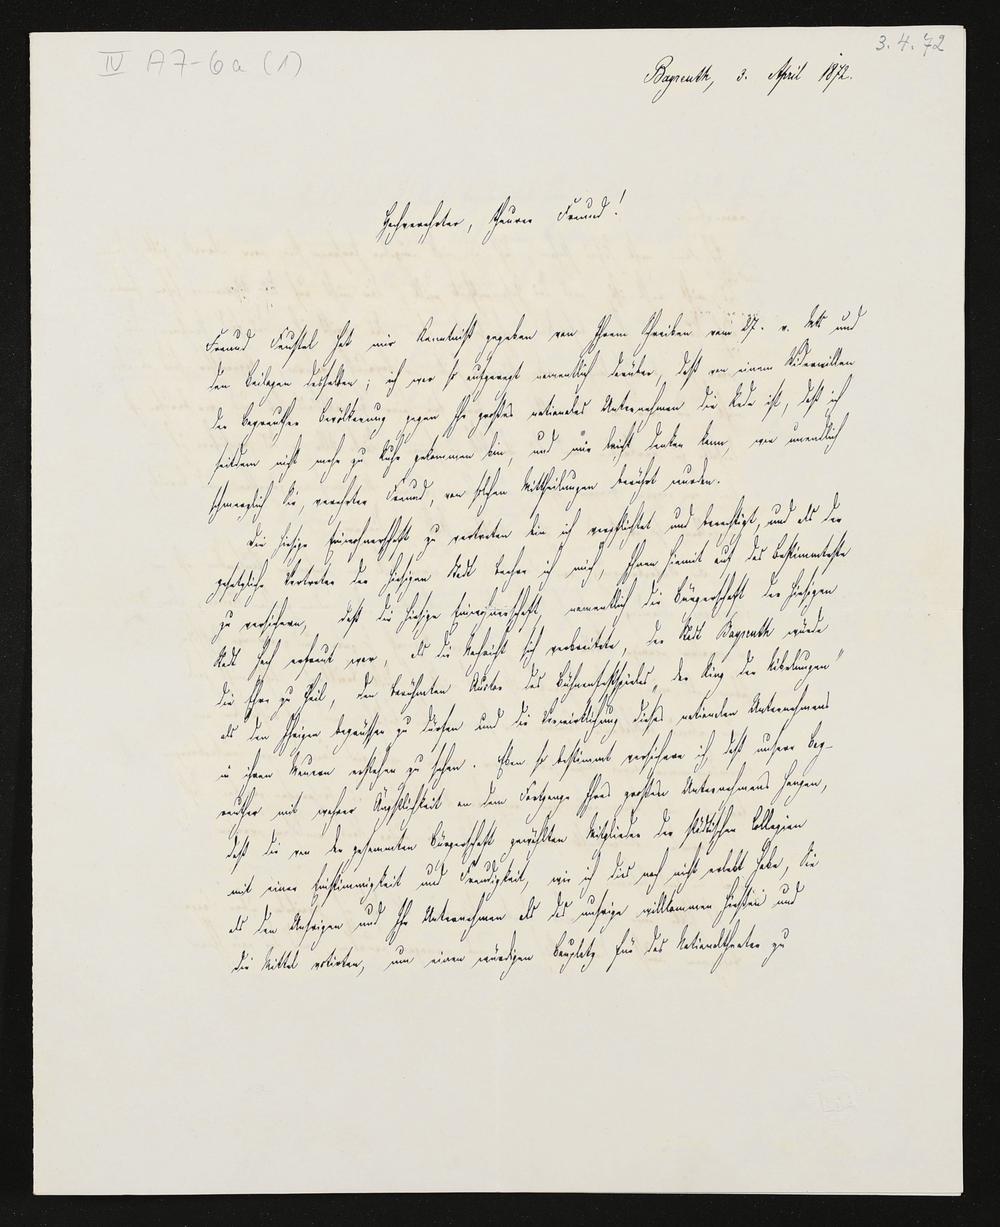 IV A7-6a (1)
3.4.72
Bayreuth, 3. April 1872.
Hochverehrter, theurer Freund!
Freund Feustel hat mir Kenntniß gegeben von Ihrem Schreiben vom 27. v. Mts und
den Beilagen desselben; ich war so aufgeregt namentlich darüber, daß von einem Widerwillen
der Bayreuther Bevölkerung gegen Ihr großes nationales Unternehmen die Rede ist, daß ich
seitdem nicht mehr zu Ruhe gekommen bin, und mir leicht denken kann, wie unendlich
schmerzlich Sie, verehrter Freund, von solchen Mittheilungen berührt wurden.
Die hiesige Einwohnerschaft zu vertreten bin ich verpflichtet und berechtigt, und als der
gesetzliche Vertreter der hiesigen Stadt beehre ich mich, Ihnen hiemit auf das Bestimmteste
zu versichern, daß die hiesige Einwohnerschaft, namentlich die Bürgerschaft der hiesigen
Stadt hoch erfreut war, als die Nachricht sich verbreitete, der Stadt Bayreuth würde
die Ehre zu Theil, den berühmten Autor des Bühnenfestspieles „der Ring der Nibelungen"
als den Ihrigen begrüssen zu dürfen und die Verwirklichung dieses nationalen Unternehmens
in ihren Mauern erstehen zu sehen. Eben so bestimmt versichere ich daß unsere Bay-
reuther mit wahrer Ängstlichkeit an dem Fortgange Ihres großen Unternehmens hangen,
daß die von der gesammten Bürgerschaft gewählten Mitglieder der städtischen Collegien
mit einer Einstimmigkeit und Freudigkeit, wie ich dies noch nicht erlebt habe, Sie
als den Unsrigen und Ihr Unternehmen als das unsrige willkommen hießen und
die Mittel votirten, um einen würdigen Bauplatz für das Nationaltheater zu